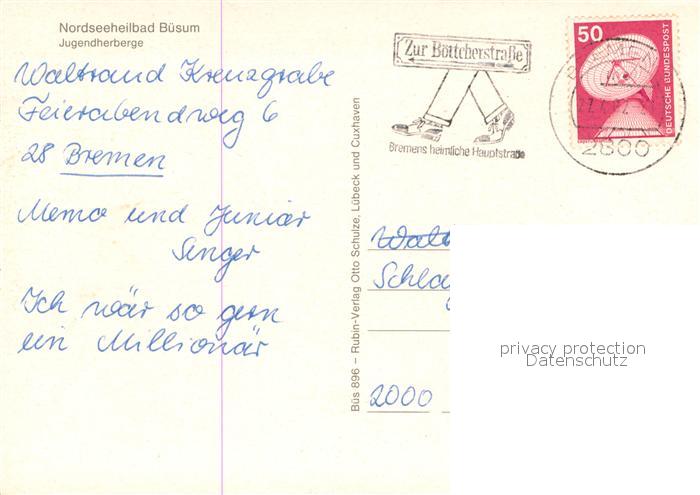 Nordseeheilbad Büsum
Jugendherberge
Waltraud Kreuzgrabe
Feierabendweg 6
28 Bremen
Memo und Junior
Singer
Ich wär so gern
ein Millionär
Büs 896 – Rubin-Verlag Otto Schulze, Lübeck und Cuxhaven
Zur Böttcherstraße
Bremens heimliche Hauptstraße
50
DEUTSCHE BUNDESPOST
BREMEN
2800
Schla
2000
privacy protection
Datenschutz